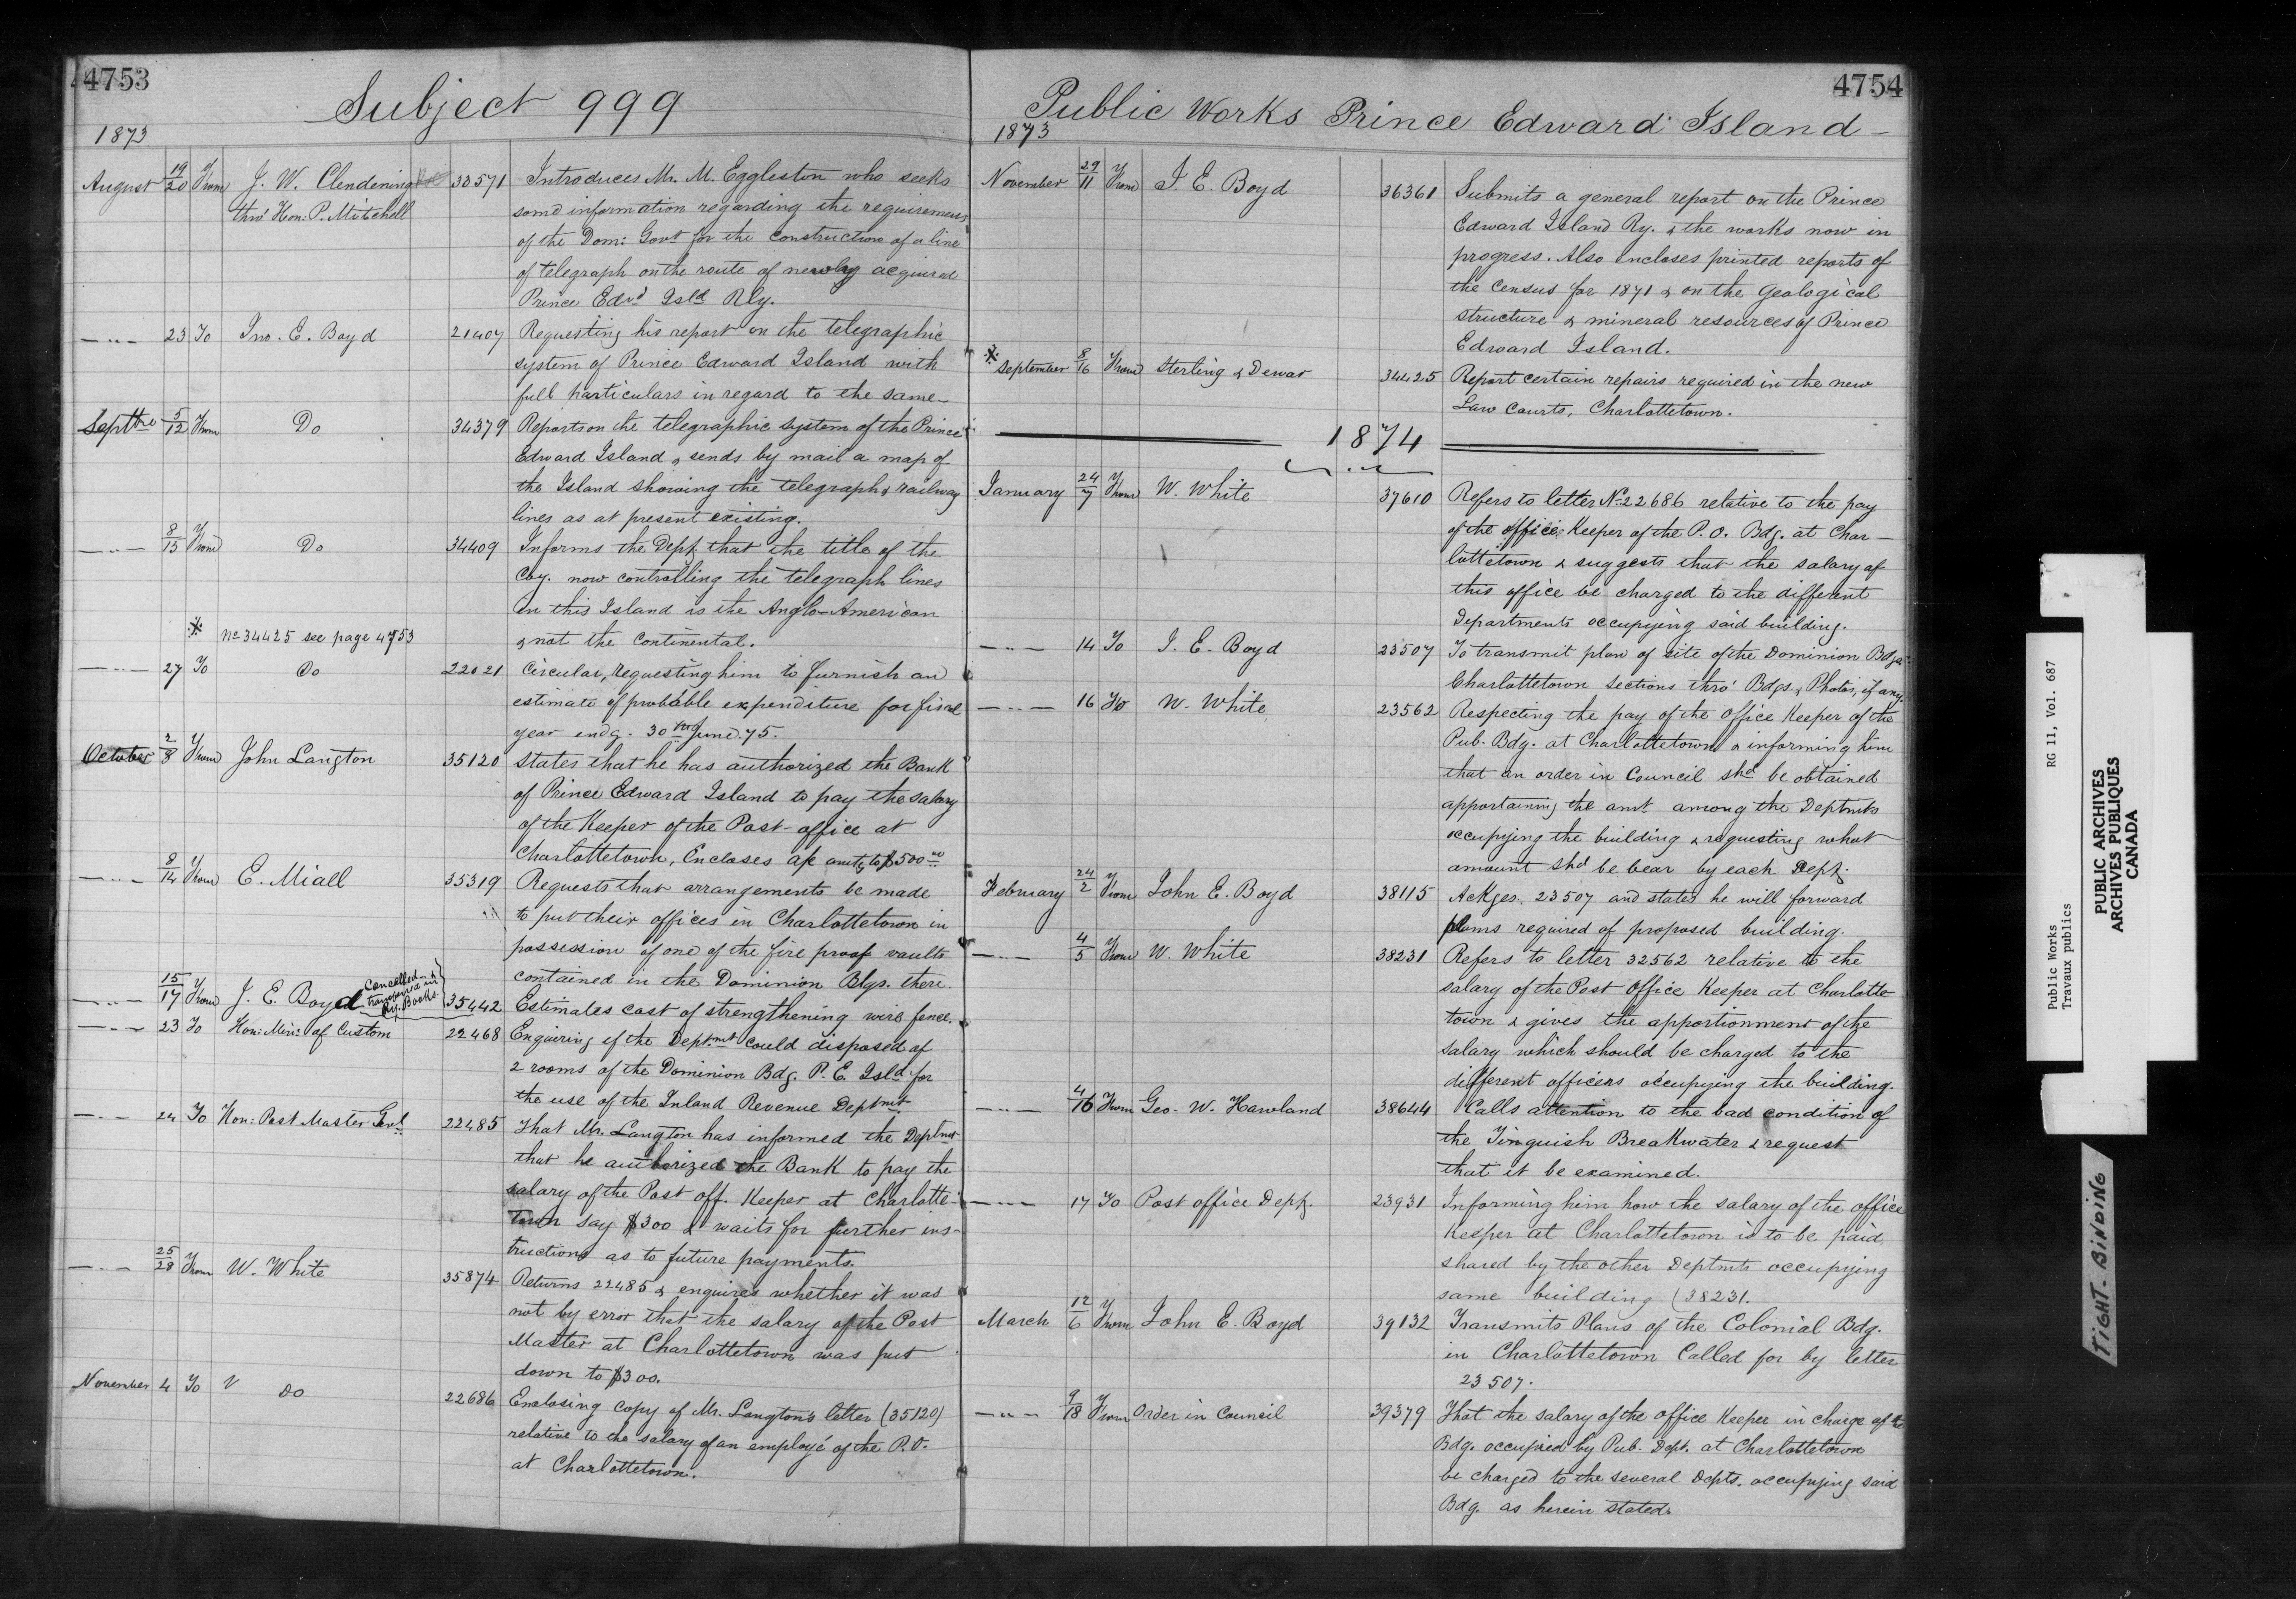 4753
Subject 999
1873
August 19/20 From J. W. Clendening 33571 Introduces Mr. M. Eggleston who seeks
thro' Hon: P. Mitchell some information regarding the requirements
of the Dom: Govt for the construction of a line
of telegraph on the route of newly acquired
Prince Edwd Isld Rly.
—"— 23 To Jno. E. Boyd 21407 Requesting his report on the telegraphic
system of Prince Edward Island with
full particulars in regard to the same—
Septbre 5/12 From Do 34379 Reports on the telegraphic system of the Prince
Edward Island & sends by mail a map of
the Island showing the telegraph & railway
lines as at present existing.
—"— 8/15 From Do 34409 Informs the Dept that the title of the
Coy. now controlling the telegraph lines
on this Island is the Anglo-American
* No 34425 see page 4753 & not the Continental.
—"— 27 To Do 22021 Circular, requesting him to furnish an
estimate of probable expenditure for fiscal
year endg. 30th June. 75.
October 2/8 From John Langton 35120 States that he has authorized the Bank
of Prince Edward Island to pay the salary
of the Keeper of the Post-office at
Charlottetown, Encloses a/c amtg to $500.00
—"— 8/14 From E. Miall 35319 Requests that arrangements be made
to put their offices in Charlottetown in
possession of one of the fire proof vaults
contained in the Dominion Blgs. there.
—"— 15/17 From J. E. Boyd Cancelled & transferred in Ry. Books. 35442 Estimates cost of strengthening wire fence.
—"— 23 To Hon: Minr of Custom 22468 Enquiring if the Deptmt could disposed of
2 rooms of the Dominion Bdg. P. E. Isld for
the use of the Inland Revenue Deptmt
—"— 24 To Hon: Post Master Genl 22485 That Mr. Langton has informed the Deptmt
that he authorized the Bank to pay the
salary of the Post off. Keeper at Charlotte-
town say $300 & waits for further ins-
tructions as to future payments.
—"— 25/28 From W. White 35874 Returns 22485 & enquires whether it was
not by error that the salary of the Post
Master at Charlottetown was put
down to $300.
November 4 To V Do 22686 Enclosing copy of Mr. Langton's letter (35120)
relative to the salary of an employé of the P.O.
at Charlottetown.
4754
Public Works Prince Edward Island—
1873
November 29/11 From J. E. Boyd 36361 Submits a general report on the Prince
Edward Island Ry. & the works now in
progress. Also encloses printed reports of
the Census for 1871 & on the Geological
structure & mineral resources of Prince
Edward Island.
* September 8/16 From Sterling & Dewar 34425 Report certain repairs required in the new
Law Courts, Charlottetown.
1874
January 24/7 From W. White 37610 Refers to letter No 22686 relative to the pay
of the office Keeper of the P. O. Bdg. at Char—
lottetown & suggests that the salary of
this office be charged to the different
Departments occupying said building.
—"— 14 To J. E. Boyd 23507 To transmit plan of site of the Dominion Bdgs
Charlottetown Sections thro' Bdgs. & Photos, if any.
—"— 16 To W. White 23562 Respecting the pay of the Office Keeper of the
Pub. Bdg. at Charlottetown & informing him
that an order in Council shd be obtained
apportaining the amt among the Deptmts
occupying the building & requesting what
amount shd be bear by each Dept.
February 24/2 From John E. Boyd 38115 Ackges. 23507 and states he will forward
plans required of proposed building.
—"— 4/5 From W. White 38231 Refers to letter 32562 relative to the
salary of the Post Office Keeper at Charlotte
town & gives the apportionment of the
salary which should be charged to the
different officers occupying the building.
—"— 4/16 From Geo. W. Howland 38644 Calls attention to the bad condition of
the Tinguish Breakwater & request
that it be examined.
—"— 17 To Post office Dept. 23931 Informing him how the salary of the office
Keeper at Charlottetown is to be paid,
shared by the other Deptmts occupying
same building (38231.
March 12/6 From John E. Boyd 39132 Transmits Plans of the Colonial Bdg.
in Charlottetown Called for by letter
23507.
—"— 9/18 From Order in Council 39379 That the salary of the office Keeper in charge of the
Bdg. occupied by Pub. Dept. at Charlottetown
be charged to the several Depts. occupying said
Bdg. as herein stated.
Public Works RG 11, Vol. 687
Travaux publics
PUBLIC ARCHIVES
ARCHIVES PUBLIQUES
CANADA
TIGHT BINDING